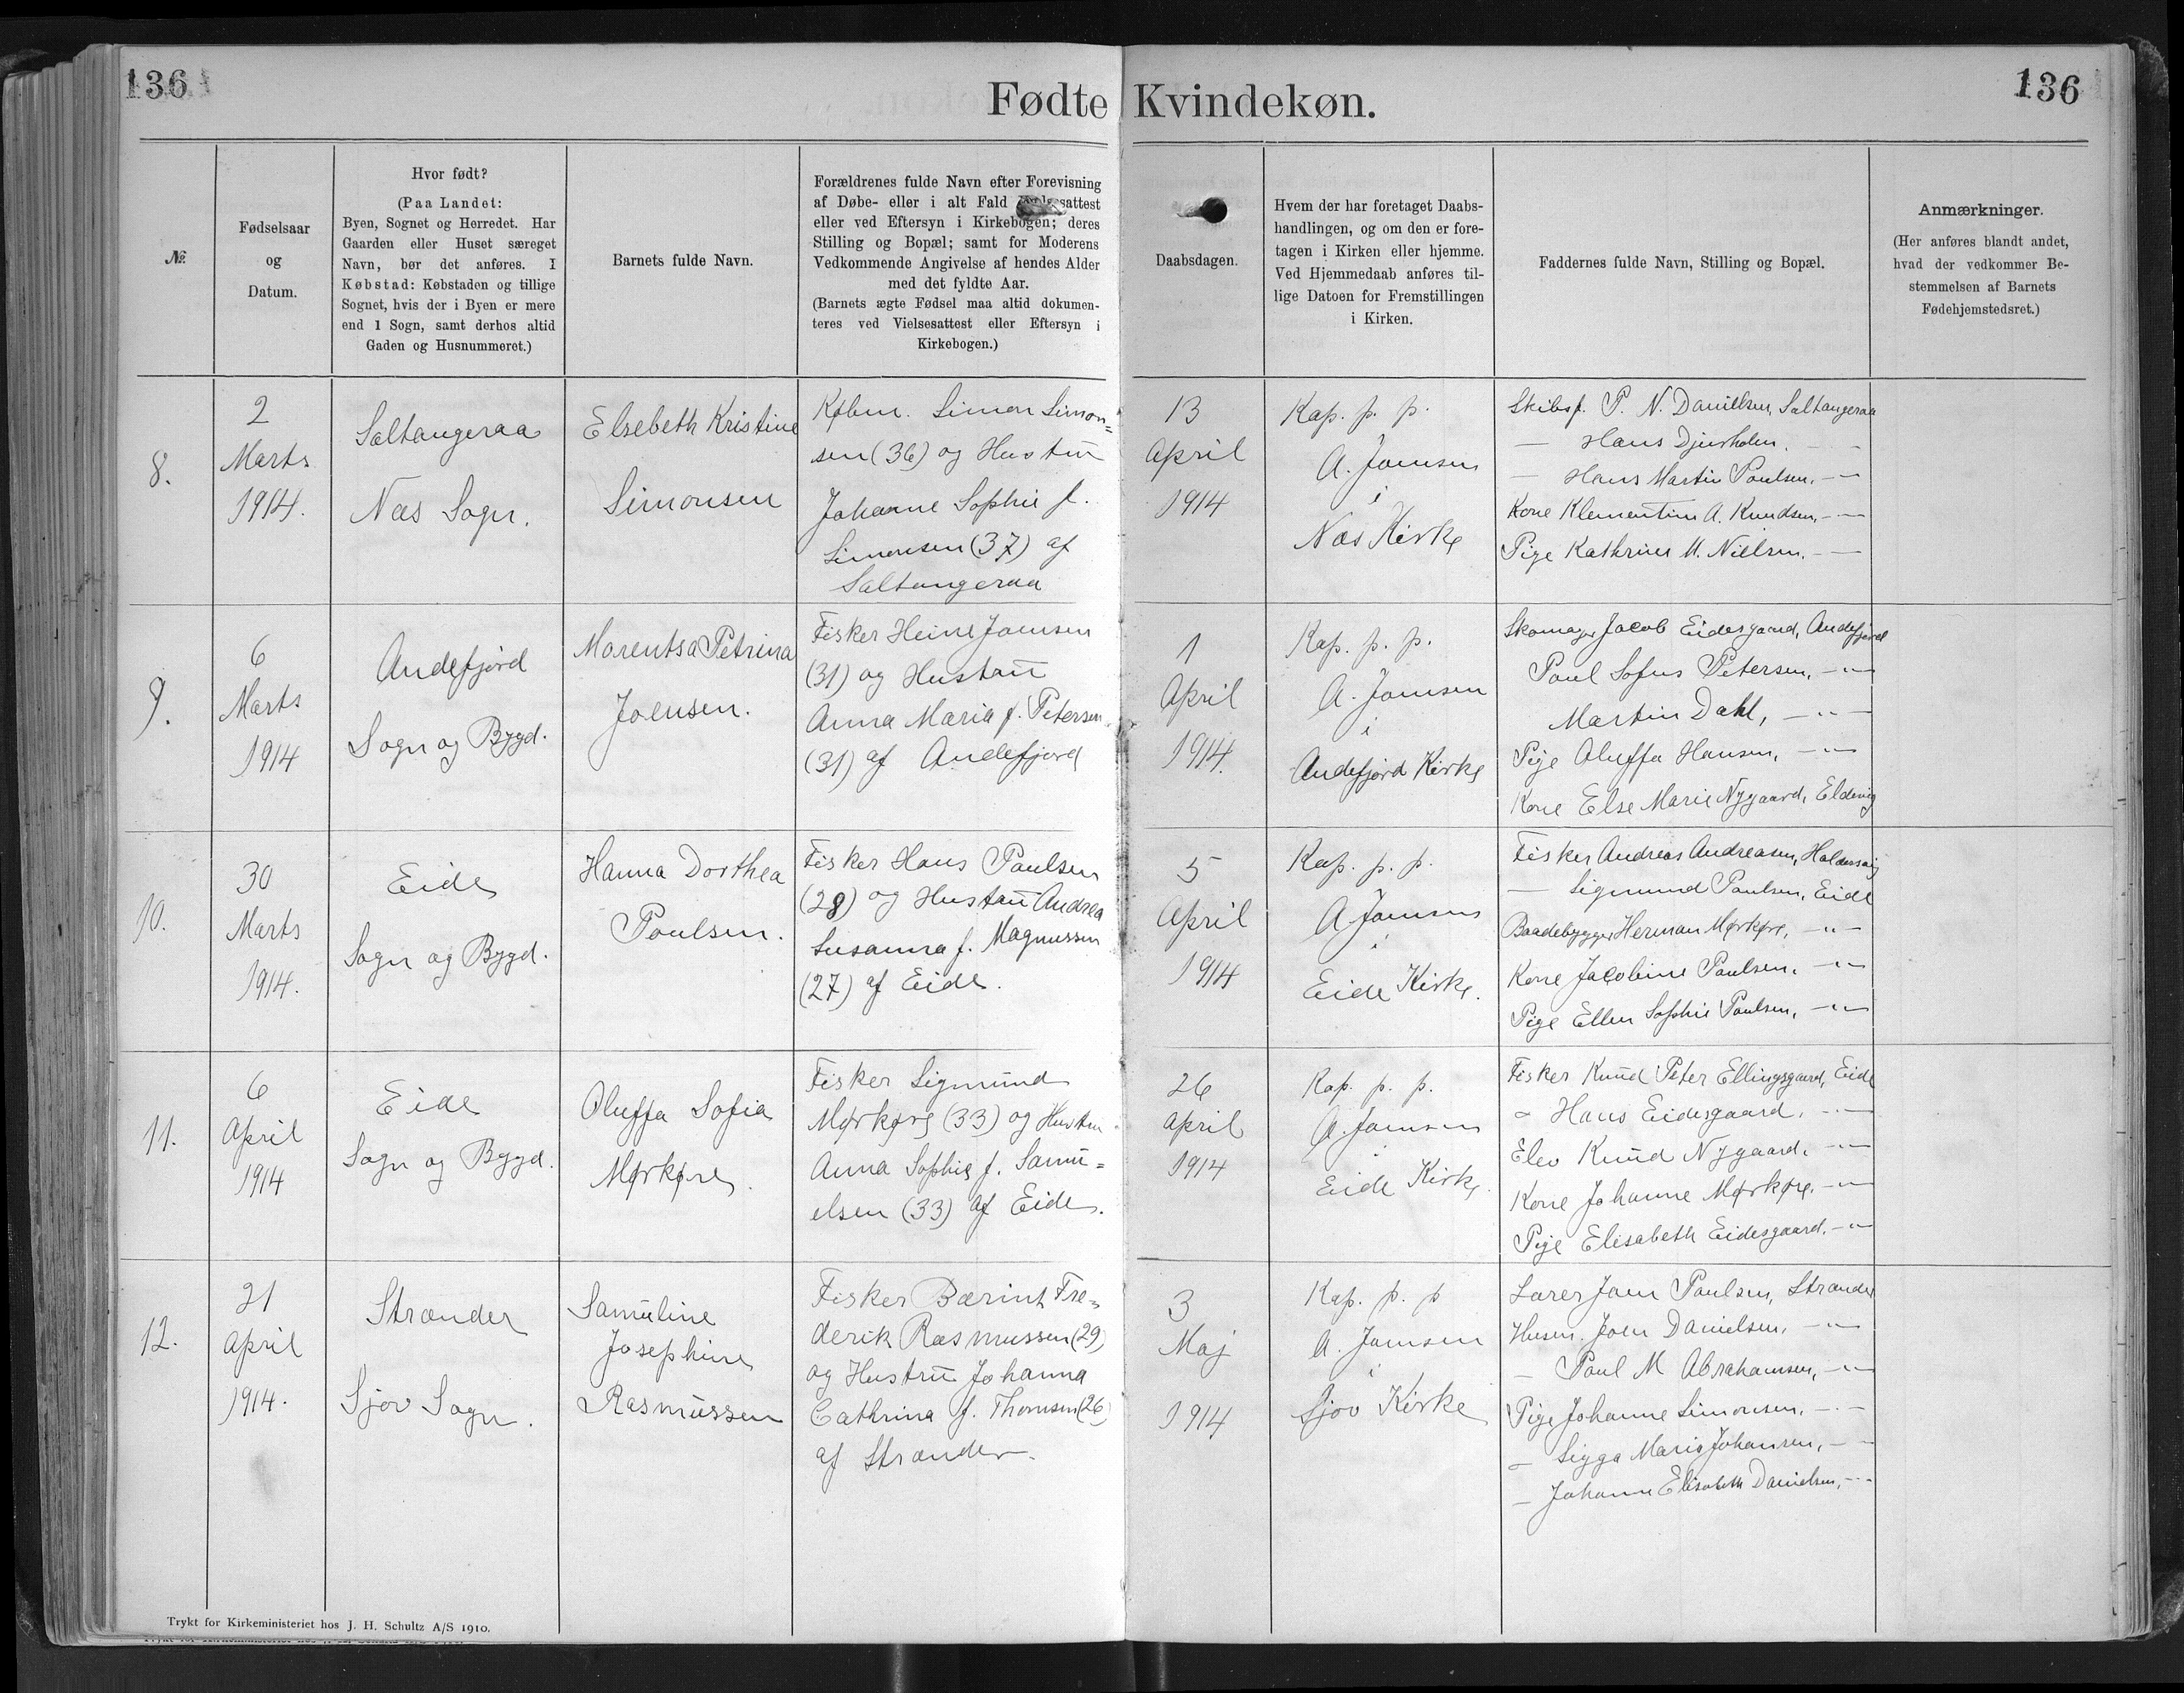 136
Fødte Kvindekøn.
136
№
Fødselsaar
og
Datum.
Hvor født?
(Paa Landet:
Byen, Sognet og Herredet. Har
Gaarden eller Huset særeget
Navn, bør det anføres. I
Købstad: Købstaden og tillige
Sognet, hvis der i Byen er mere
end 1 Sogn, samt derhos altid
Gaden og Husnummeret.)
Barnets fulde Navn.
Forældrenes fulde Navn efter Forevisning
af Døbe- eller i alt Fald
eller ved Eftersyn i Kirkebogen; deres
Stilling og Bopæl; samt for Moderens
Vedkommende Angivelse af hendes Alder
med det fyldte Aar.
(Barnets ægte Fødsel maa altid dokumen-
teres ved Vielsesattest eller Eftersyn i
Kirkebogen.)
Daabsdagen.
Hvem der har foretaget Daabs-
handlingen, og om den er fore-
tagen i Kirken eller hjemme.
Ved Hjemmedaab anføres til-
lige Datoen for Fremstillingen
i Kirken.
Faddernes fulde Navn, Stilling og Bopæl.
Anmærkninger.
(Her anføres blandt andet,
hvad der vedkommer Be-
stemmelsen af Barnets
Fødehjemstedsret.)
8.
2
Marts
1914.
Saltangeraa
Næs Sogn.
Elsebeth Kristine
Simonsen
Købm. Simon Simon=
sen (36) og Hustru
Johanne Sophie f.
Simonsen (37) af
Saltangeraa
13
April
1914
Kap. p. p.
A. Joensen
i
Næs Kirke
Skibsf. P. N. Danielsen, Saltangeraa
— Hans Djurholm. — —
— Hans Martin Poulsen. — —
Kone Klementine A. Knudsen, — —
Pige Kathrine M. Nielsen. — —
9.
6
Marts
1914
Andefjord
Sogn og Bygd.
Marentsa Petrina
Joensen.
Fisker Heine Joensen
(31) og Hustru
Anna Maria f. Petersen
(31) af Andefjord
1
April
1914.
Kap. p. p.
A. Joensen
i
Andefjord Kirke
Skomager Jacob Eidesgaard, Andefjord
Poul Sofus Petersen, —"—
Martin Dahl, —"—
Pige Oluffa Hansen, —"—
Kone Else Marie Nygaard, Eldevig
10.
30
Marts
1914.
Eide
Sogn og Bygd.
Hanna Dorthea
Poulsen.
Fisker Hans Poulsen
(28) og Hustru Andrea
Susanna f. Magnussen
(27) af Eide.
5
April
1914
Kap. p. p.
A Joensen
i
Eide Kirke.
Fisker Andreas Andreasen, Haldersvig
— Sigmund Poulsen, Eide
Baadebygger Herman Mørkøre, —"—
Kone Jacobine Poulsen, —"—
Pige Ellen Sophie Poulsen, —"—
11.
6
April
1914
Eide
Sogn og Bygd.
Oluffa Sofia
Mørkøre.
Fisker Sigmund
Mørkøre (33) og Hustru
Anna Sophie f. Samu=
elsen (33) af Eide.
26
April
1914
Kap. p. p.
A. Joensen
i
Eide Kirke.
Fisker Knud Peter Ellingsgaard, Eide
— Hans Eidesgaard. —"—
Elev Knud Nygaard, —"—
Kone Johanne Mørkøre, —"—
Pige Elisabeth Eidesgaard, —"—
12.
21
April
1914.
Strænder
Sjov Sogn.
Samuline
Josephine
Rasmussen
Fisker Bærint Fre=
derik Rasmussen (29)
og Hustru Johanna
Cathrina f. Thomsen (26)
af Strænder.
3
Maj
1914
Kap. p. p
A. Joensen
i
Sjov Kirke
Lærer Joen Poulsen, Strænder
Husm. Joen Danielsen, —"—
— Poul M Abrahamsen, —"—
Pige Johanne Simonsen, —"—
— Sigga Marie Johansen, — —
— Johanne Elisabeth Danielsen, — —
Trykt for Kirkeministeriet hos J. H. Schultz A/S 1910.